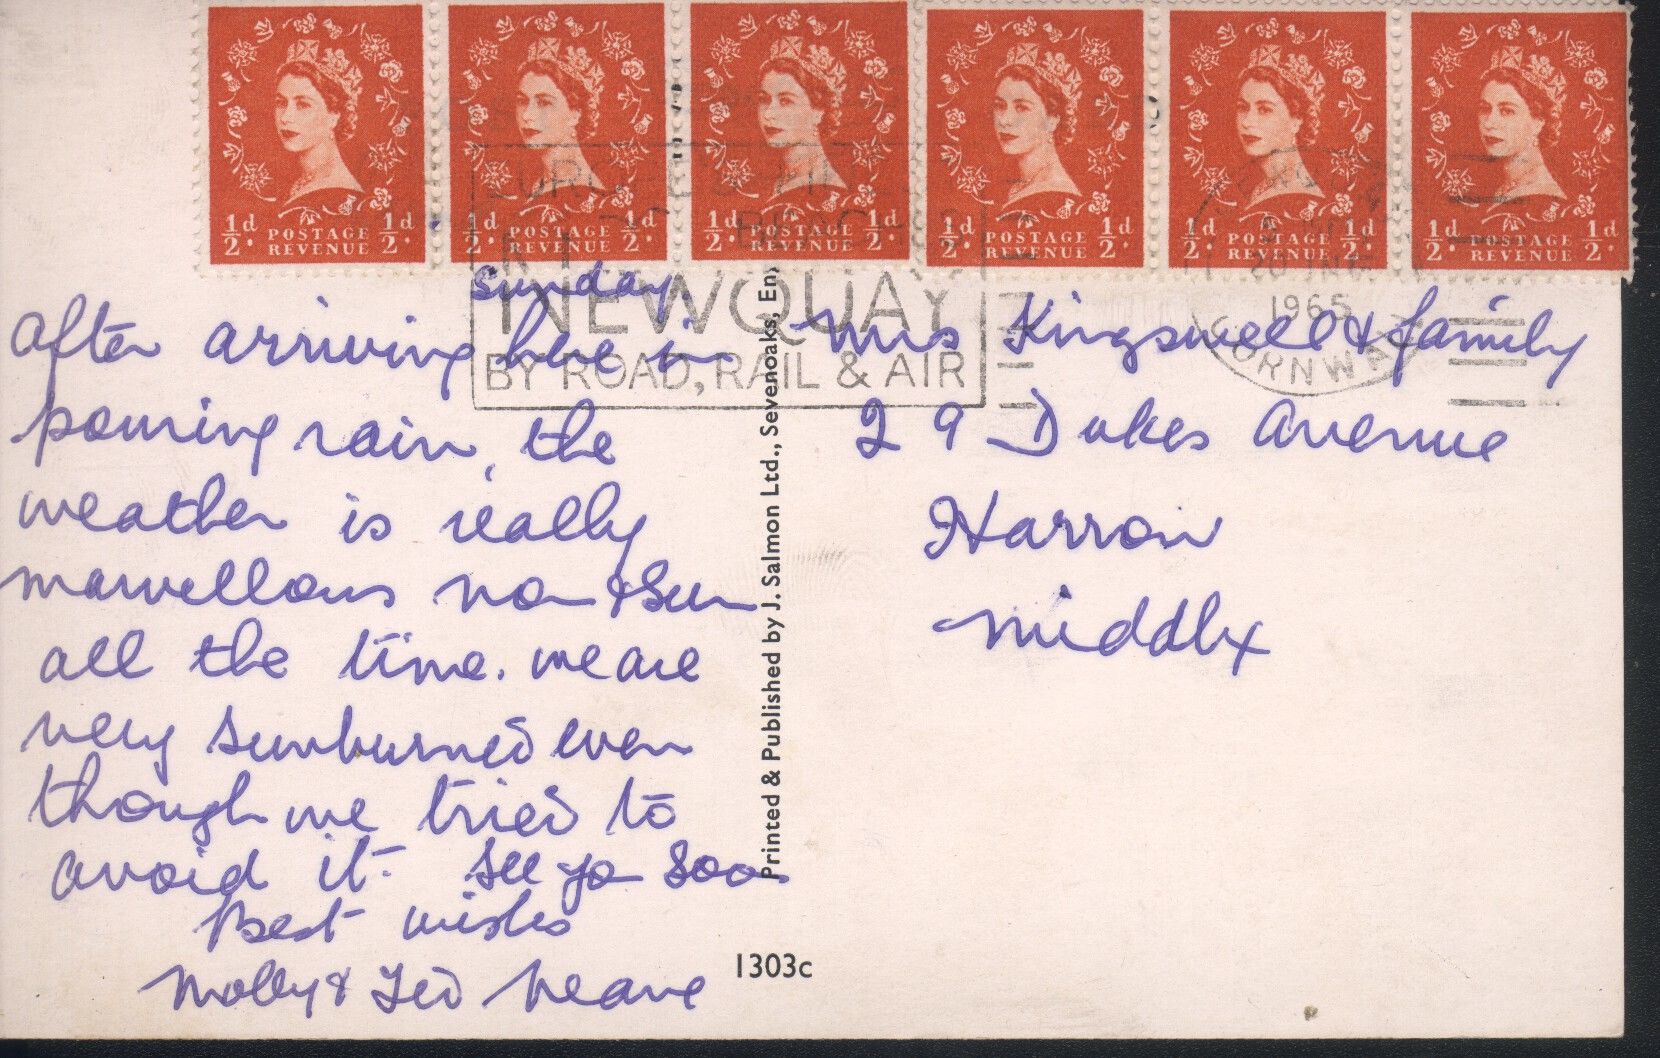 ½d POSTAGE REVENUE ½d
½d POSTAGE REVENUE ½d
½d POSTAGE REVENUE ½d
½d POSTAGE REVENUE ½d
½d POSTAGE REVENUE ½d
½d POSTAGE REVENUE ½d
NEWQUAY
BY ROAD, RAIL & AIR
1965
CORNWALL
Sunday.
After arriving here in
pouring rain, the
weather is really
marvellous now & Sun
all the time. we are
very sunburned even
though we tried to
avoid it. See you soon
Best wishes
Molly & Ted Neave
Printed & Published by J. Salmon Ltd., Sevenoaks, Eng.
1303c
Mrs Kingswell & family
29 Dukes Avenue
Harrow
Middlx